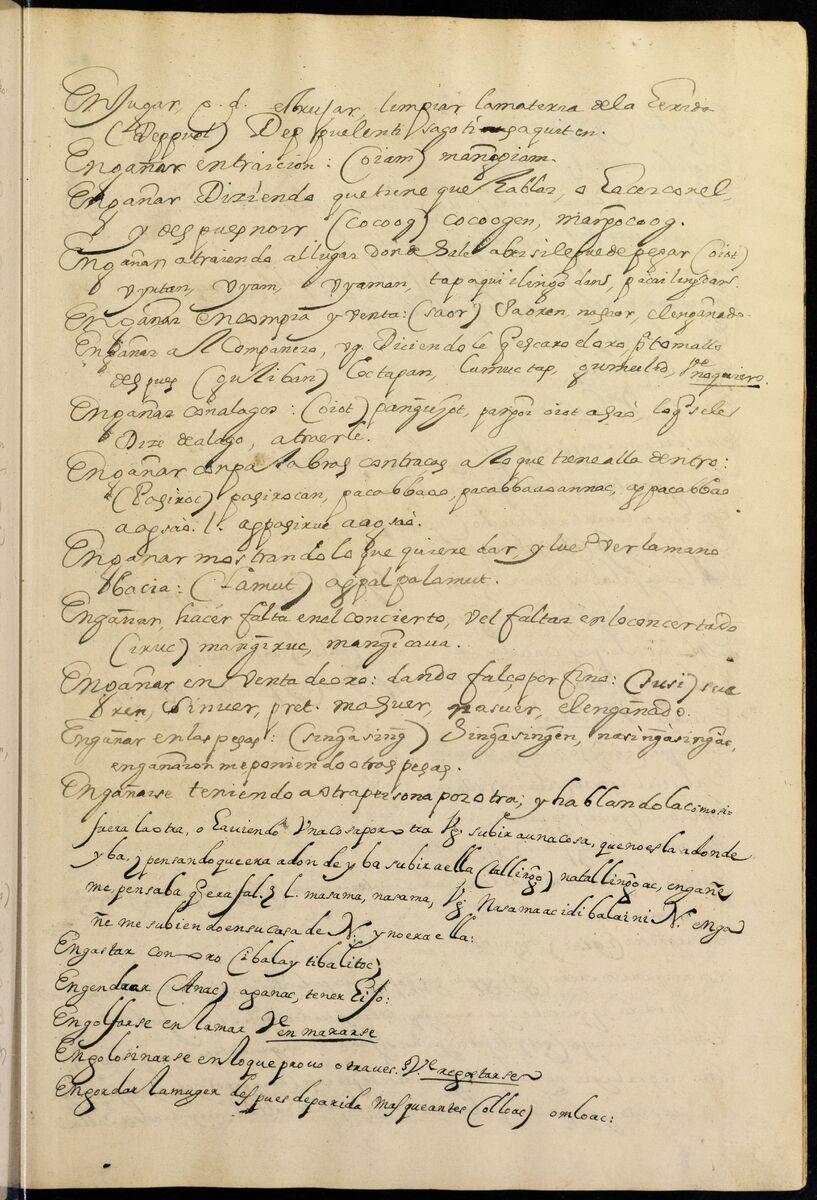 Enjugar, p. d. estrujar, limpiar lamateria dela herida
(Deppuet) Deppuelenti sagotina quiten.
Engañar entraicion: (oiam) mangoiam.
Engañar Diziendo quetiene que hablar, o hacer conel,
y despues no ir (cocoog) cocoogen, mangocoog.
Engañar atraiendo allugar donde sale aber si lepuede pegar (oiot)
vyutan, vyam, vyaman,
Engañar encompra y venta: (saor) saoren, nasaor, elengañado.
Engañar al Compañero, vg. Diciendo le q̃ escaro el oro, pa tomallo
despues (guliban)
Engañar conalagos: (oiot) oiot agsao, loq̃ seles
Dize dealago, atraerle.
Engañar conpalabras contraras aloque tiene alla dentro:
(Pagiroc) pagirocan, pacabbaoo, pacabbaoannac, agpacabbao
aagsao. l. agpagiruc aagsao.
Engañar mostrando lo que quiere dar, y lueg.o ver lamano
bacia: (lamut) agpalpalamut.
Engañar, hacer falta enel concierto, vel faltar en lo concertado
(iruc) mangiruc, mangicaua.
Engañar en venta deoro: dando falço por fino: (susi) sue
xen, sinuer, pret. nasuer, elengañado.
Engañar en las pesas: (singasing) singasingen, nasingasingac,
engañaron me poniendo otras pesas.
Engañarse teniendo aotrapersona por otra; y hablandola como si
fuera laotra, o haviendo Vna cosa por otra Vg. subir auna cosa, quenoesla adonde
yba, pensando que era adonde yba subir aella (tallingo) natallingoac, engañe
me, pensaba q̃ era fal. l. masama, nasama, Vg. Nasamaac idi balai ni N. enga
ñe me subiendo ensu casa de N. y noera ella:
Engastar con oro (ibalay tibalitoc)
Engendrar (Anac) aganac, tener hijo:
Engolfarse en lamar Ve enmararse
Engolosinarse enloque provo otraves. Ve regostarse
Engordar lamuger despues deparida mas queantes (olloac) omloac: